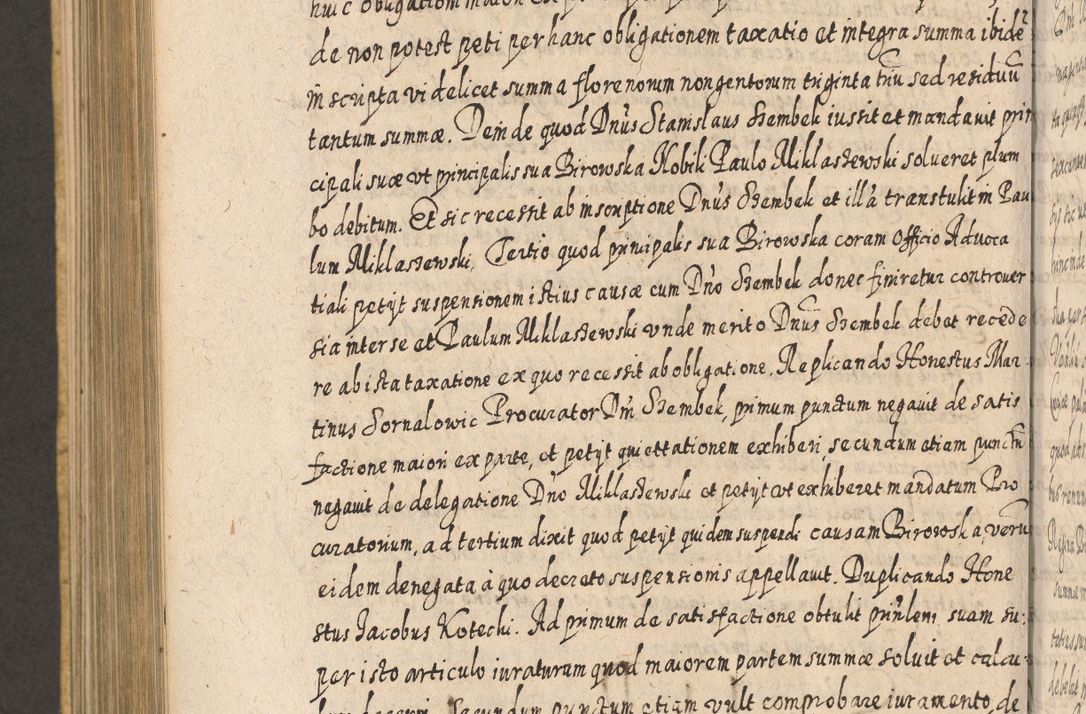 huic obligationi maiori ex
de non potest peti per hanc obligationem taxatio et integra summa ibidē
in scripta videlicet summa florenorum nongentorum triginta triū sed residuū
tantum summæ. Deinde quod Dnūs Stanislaus Szembek iussit et mandavit prin
cipali suæ vt principalis sua Birowska Nobili Paulo Miklaszewski solveret plum
bo debitum. Et sic recessit ab inscriptione Dnūs Szembek et illā transtulit in Pau
lum Miklaszewski, Tertio quod principalis sua Birowska coram Officio Advoca
tiali petijt suspensionem istius causæ cum Dno Szembek donec finiretur controver
sia inter se et Paulum Miklaszewski vnde merito Dnūs Szembek debet recede
re ab ista taxatione ex quo recessit ab obligatione. Replicando Honestus Mar
tinus Sornalowic Procurator Dni Szembek, primum punctum negavit de satis
factione maiori ex parte, et petijt quiettationem exhiberi, secundum etiam punctū
negavit de delegatione Dno Miklaszewski et petijt vt exhiberet mandatum Pro
curatorium, ad tertium dixit quod petijt quidem suspendi causam Birowska verū
eidem denegata à quo decreto suspensionis appellavit. Duplicando Hone
stus Jacobus Kotecki. Ad primum de satisfactione obtulit prinlem suam su:
per isto articulo iuraturam quod maiorem partem summæ solvit et calcu:
Secundum punctum etiam vult comprobare iuramento, de